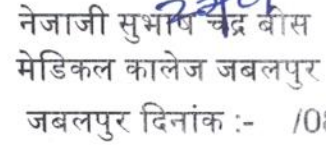 नेजाजी सुभाष चंद्र बोस
मेडिकल कालेज जबलपुर
जबलपुर दिनांक :- /08